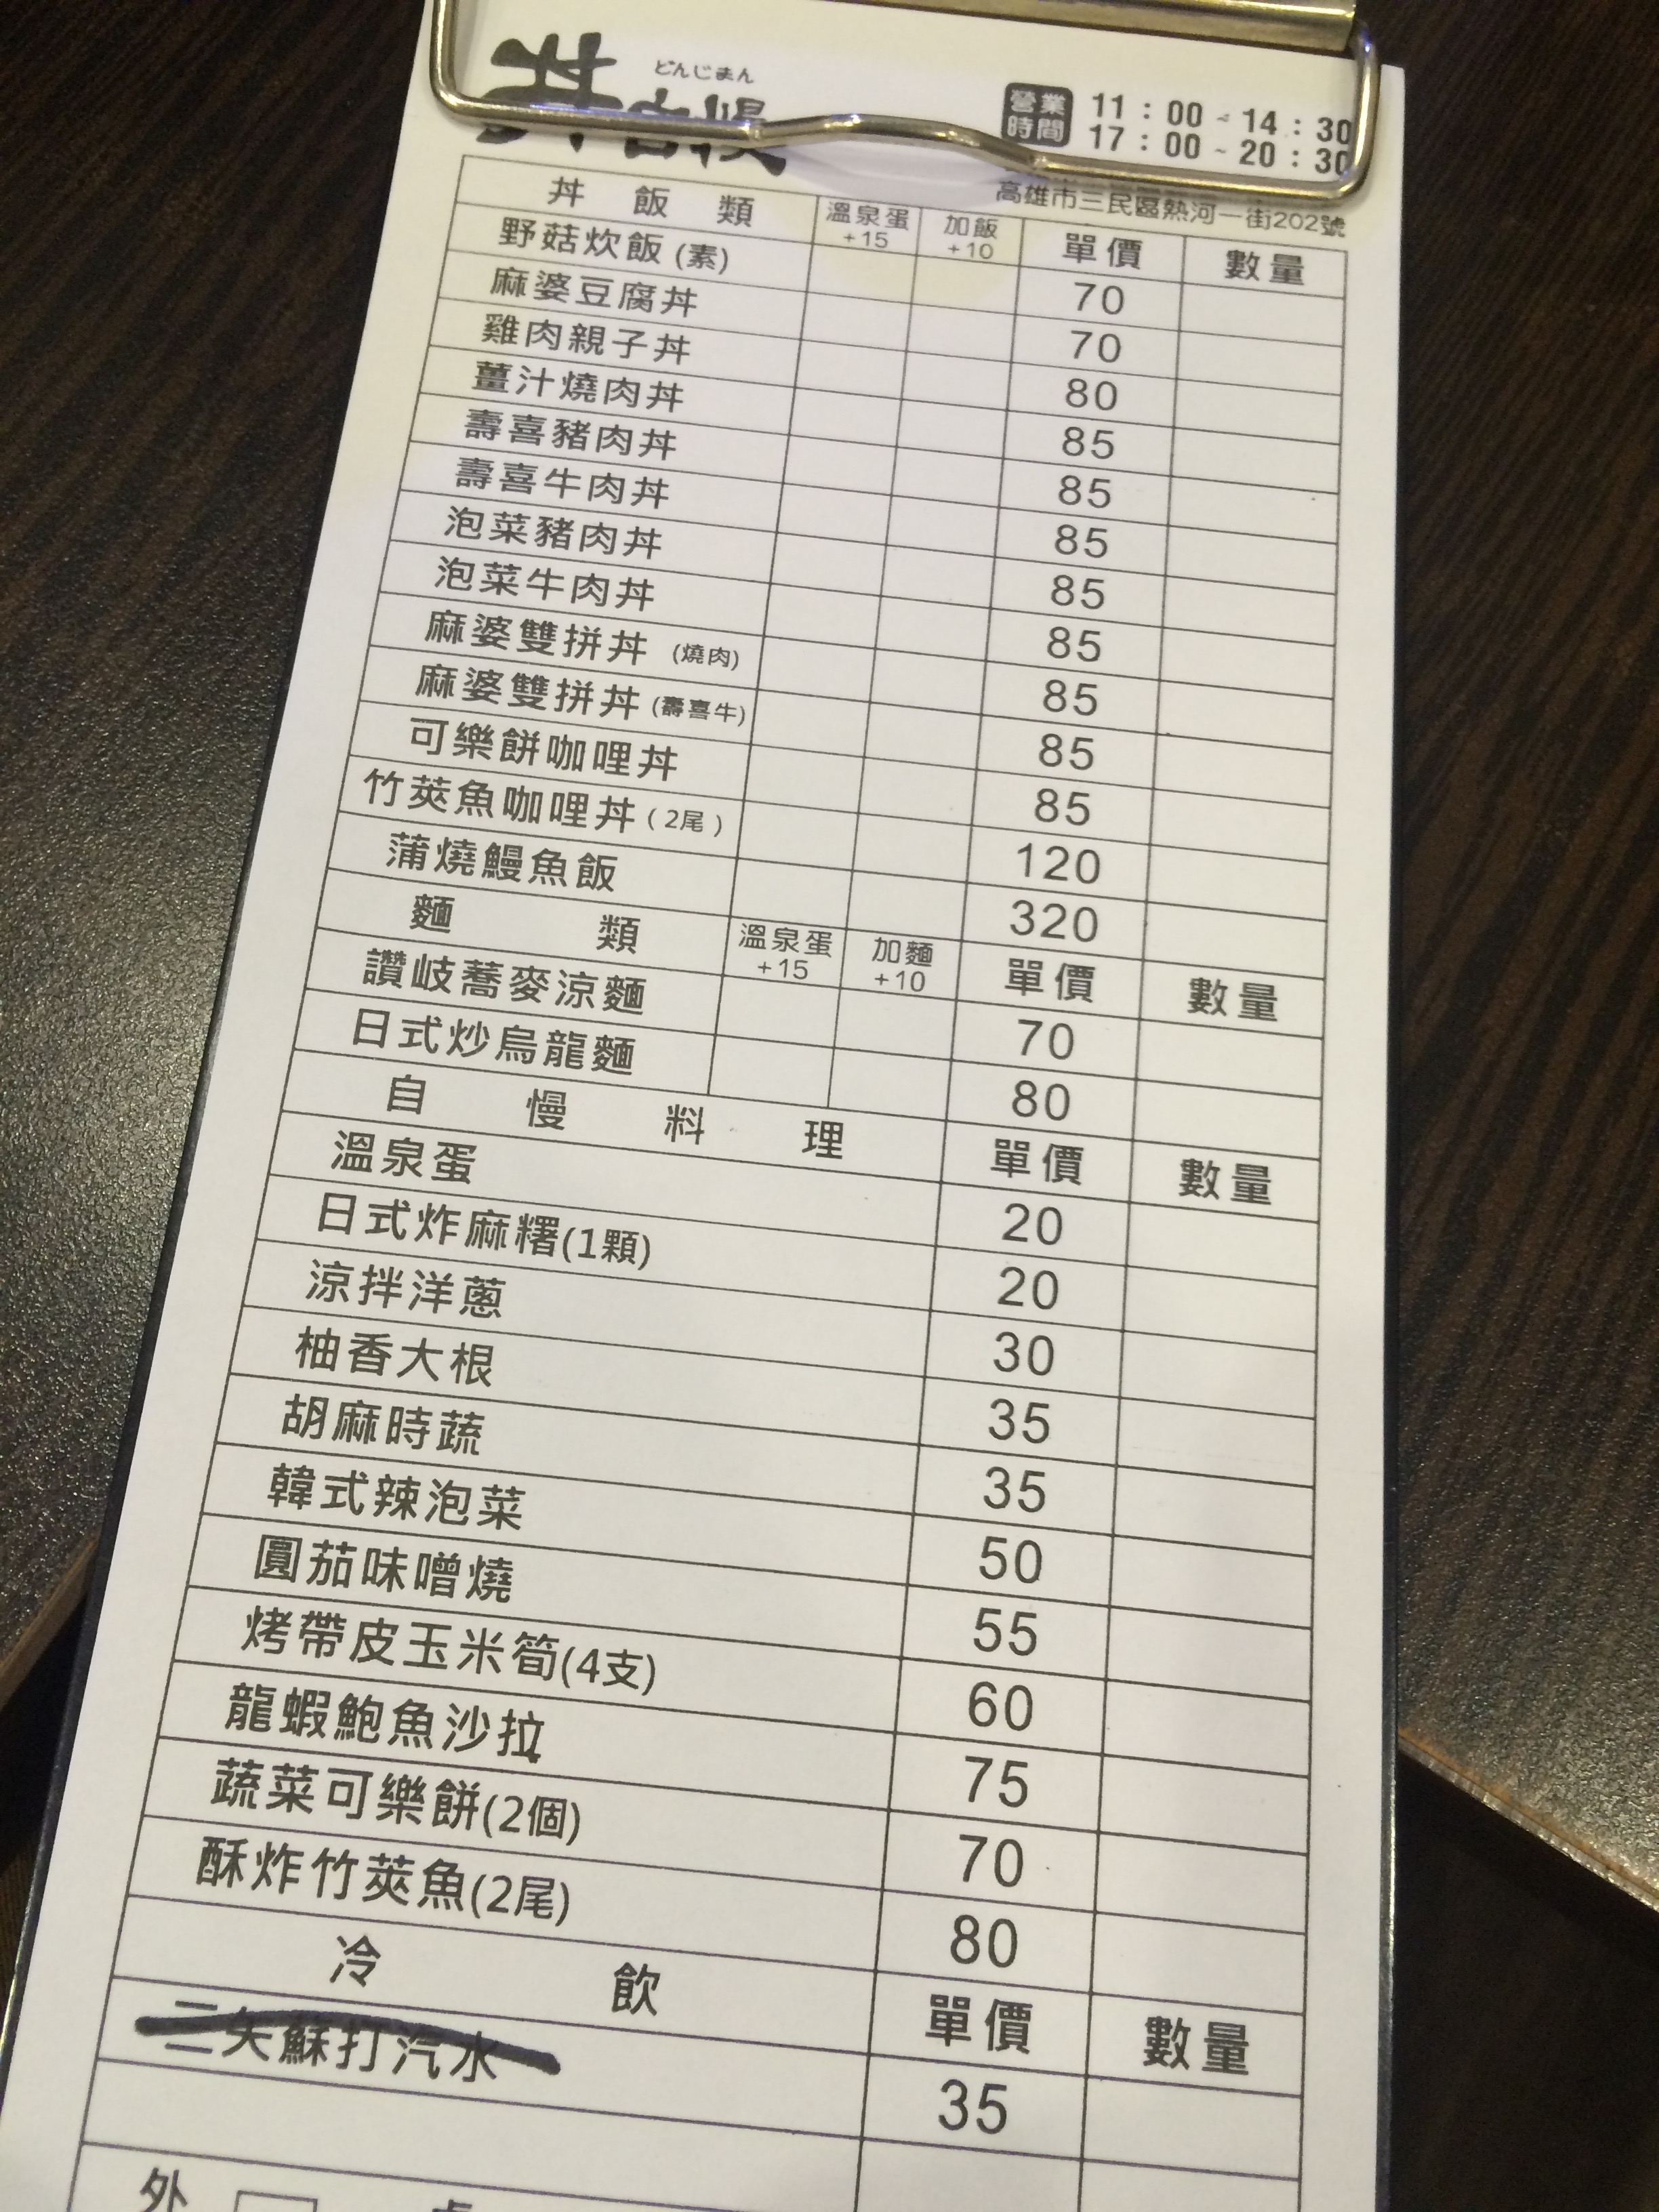 丼自慢
どんじまん
營業時間
11：00 ~ 14：30
17：00 ~ 20：30
高雄市三民區熱河一街202號
丼飯類 溫泉蛋+15 加飯+10 單價 數量
野菇炊飯 (素) 70
麻婆豆腐丼 70
雞肉親子丼 80
薑汁燒肉丼 85
壽喜豬肉丼 85
壽喜牛肉丼 85
泡菜豬肉丼 85
泡菜牛肉丼 85
麻婆雙拼丼 (燒肉) 85
麻婆雙拼丼 (壽喜牛) 85
可樂餅咖哩丼 85
竹莢魚咖哩丼 (2尾) 120
蒲燒鰻魚飯 320
麵類 溫泉蛋+15 加麵+10 單價 數量
讚岐蕎麥涼麵 70
日式炒烏龍麵 80
自慢料理 單價 數量
溫泉蛋 20
日式炸麻糬(1顆) 20
涼拌洋蔥 30
柚香大根 35
胡麻時蔬 35
韓式辣泡菜 50
圓茄味噌燒 55
烤帶皮玉米筍(4支) 60
龍蝦鮑魚沙拉 75
蔬菜可樂餅(2個) 70
酥炸竹莢魚(2尾) 80
冷飲 單價 數量
三矢蘇打汽水 35
外